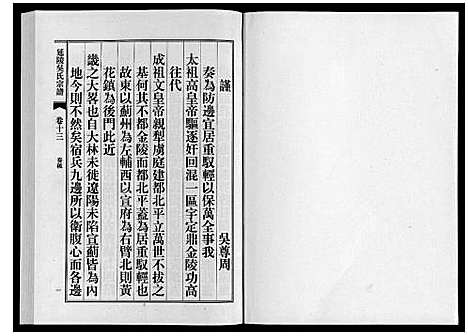 謹
吳尊周
奏為防邊宜居重馭輕以保萬全事我
太祖高皇帝驅逐奸回混一區宇定鼎金陵功高
往代
成祖文皇帝親犁虜庭建都北平立萬世不拔之
基何其不都金陵而都北平蓋為居重馭輕也
故東以薊州為左輔西以宣府為右臂北則黃
花鎮為後門此近
畿之大畧也自大林未徙遼陽未陷宣薊皆為內
地今則不然矣宿兵九邊所以衛腹心而各邊
延陵吳氏宗譜
卷十三
奏疏
一